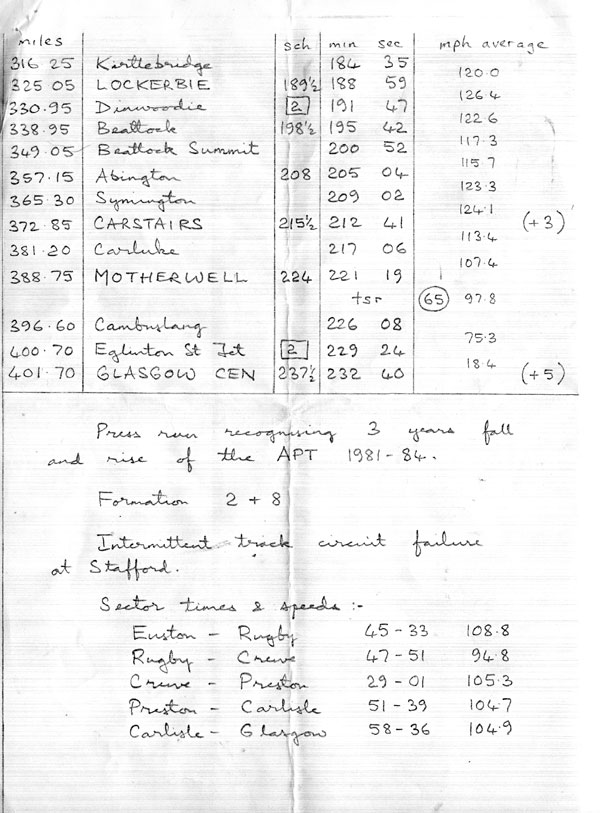 miles sch min sec mph average
316.25 Kirtlebridge 184 35
120.0
325 05 LOCKERBIE 189½ 188 59
126.4
330.95 Dinwoodie 2 191 47
122.6
338.95 Beattock 198½ 195 42
117.3
349.05 Beattock Summit 200 52
115.7
357.15 Abington 208 205 04
123.3
365.30 Symington 209 02
124.1
372.85 CARSTAIRS 215½ 212 41 (+3)
113.4
381.20 Carluke 217 06
107.4
388.75 MOTHERWELL 224 221 19
tsr 65 97.8
396.60 Cambuslang 226 08
75.3
400.70 Eglinton St Jct 2 229 24
18.4
401.70 GLASGOW CEN 237½ 232 40 (+5)
Press run recognising 3 years fall
and rise of the APT 1981-84.
Formation 2 + 8
Intermittent track circuit failure
at Stafford.
Sector times & speeds :-
Euston - Rugby 45-33 108.8
Rugby - Crewe 47-51 94.8
Crewe - Preston 29-01 105.3
Preston - Carlisle 51-39 104.7
Carlisle - Glasgow 58-36 104.9